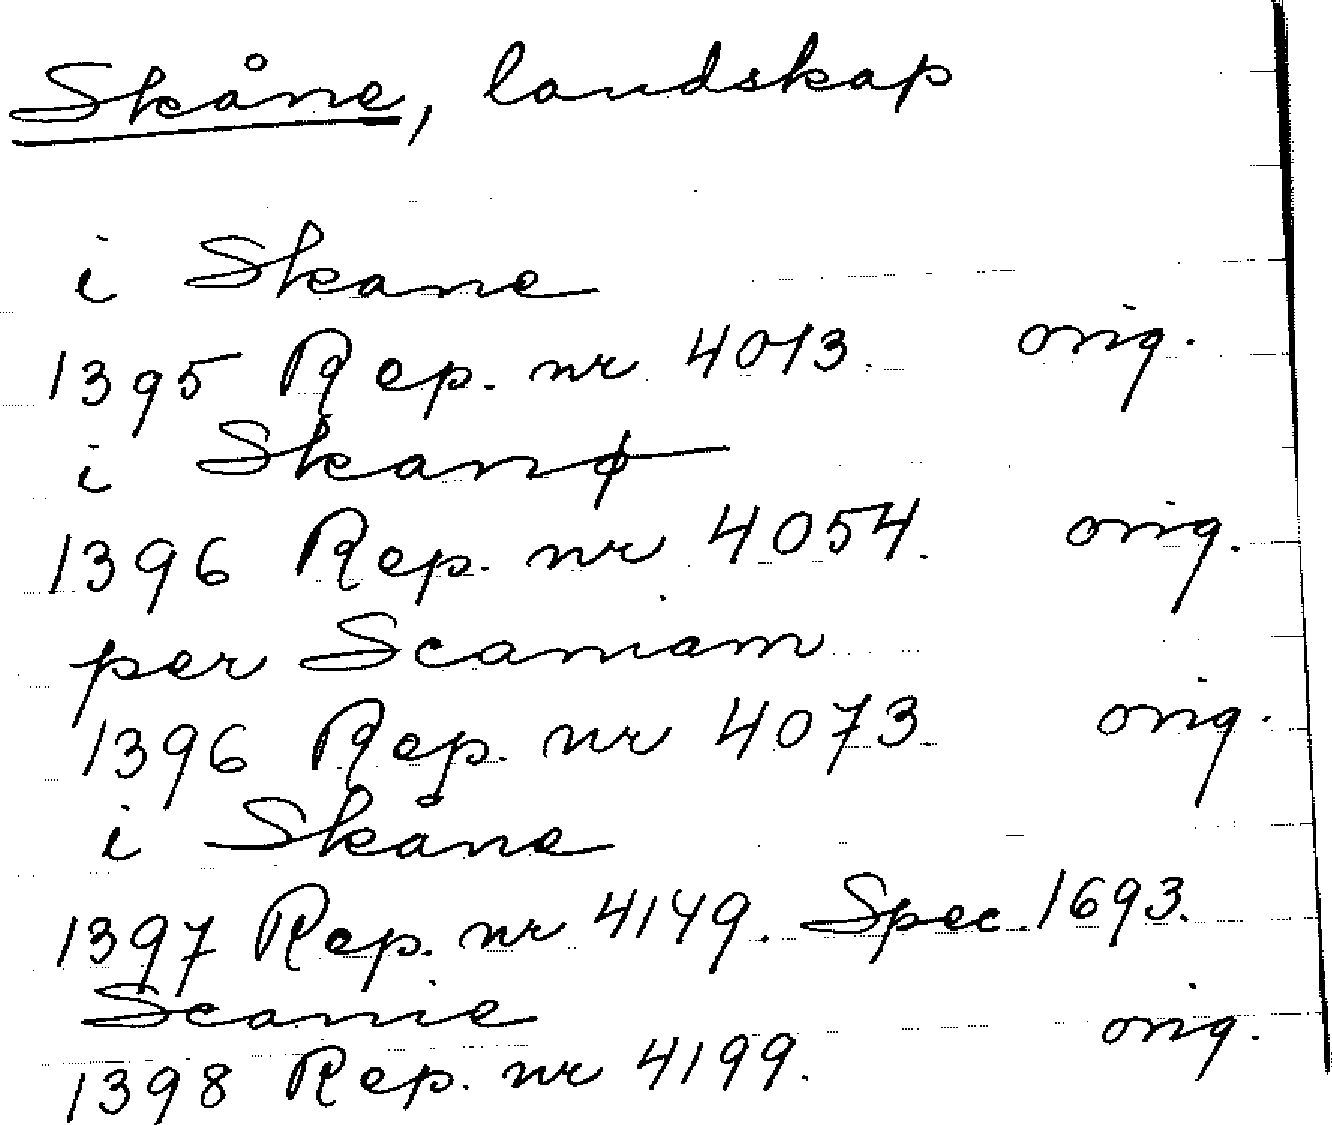 Skåne, landskap
i Skane
1395 Rep. nr 4013. orig.
i Skanø
1396 Rep. nr 4054. orig.
per Scaniam
1396 Rep. nr 4073. orig.
i Skåne
1397 Rep. nr 4149. Spec. 1693.
Scanie
1398 Rep. nr 4199. orig.